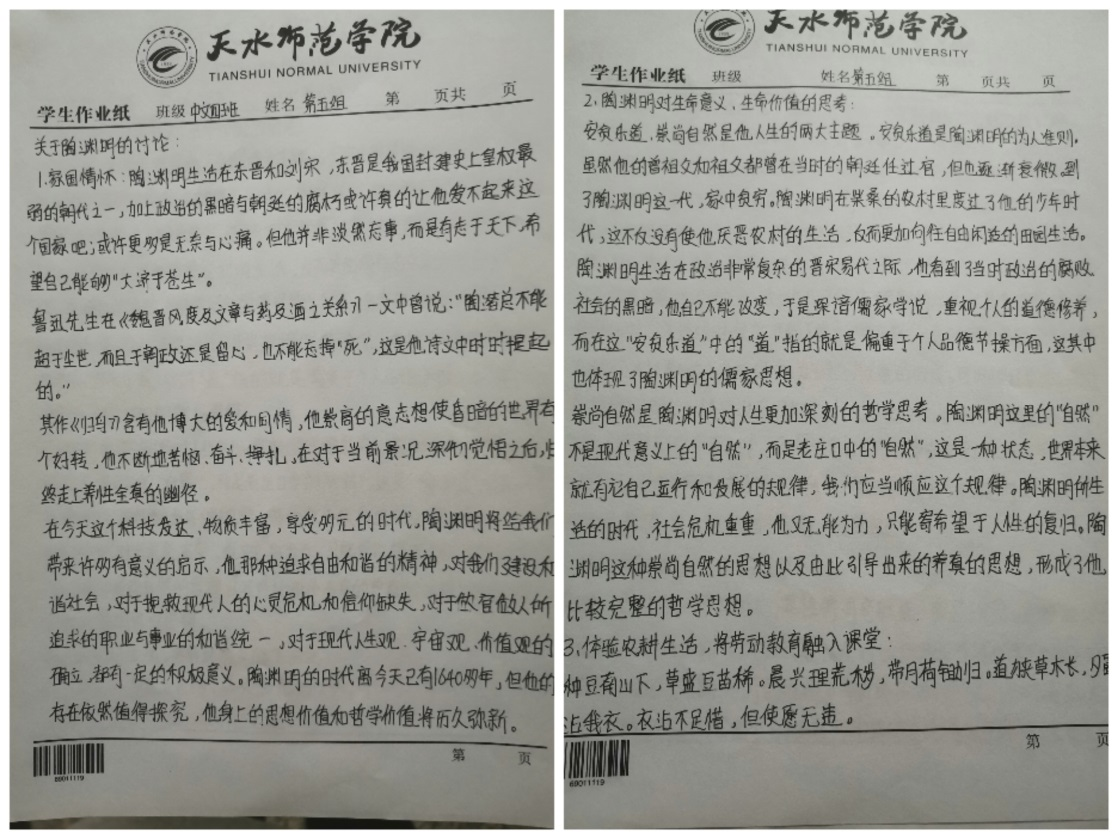 天水师范学院
TIANSHUI NORMAL UNIVERSITY
学生作业纸 班级 中文四班 姓名 第五组 第 页共 页
关于陶渊明的讨论：
1.家国情怀：陶渊明生活在东晋和刘宋，东晋是我国封建史上皇权最
弱的朝代之一，加上政治的黑暗与朝廷的腐朽或许真的让他爱不起来这
个国家吧；或许更多是无奈与心痛。但他并非淡然忘事，而是有志于天下，希
望自己能够"大济于苍生"。
鲁迅先生在《魏晋风度及文章与药及酒之关系》一文中曾说："陶潜总不能
超于尘世，而且于朝政还是留心，也不能忘掉"死"，这是他诗文中时时提起
的。"
其作《归鸟》含有他博大的爱和同情，他崇高的意志想使昏暗的世界有
个好转，他不断地苦恼、奋斗、挣扎，在对于当前景况深刻觉悟之后，
终走上养性全真的幽径。
在今天这个科技发达、物质丰富，享受多元的时代，陶渊明将给我们
带来许多有意义的启示，他那种追求自由和谐的精神，对我们建设和
谐社会，对于挽救现代人的心灵危机和信仰缺失，对于
追求的职业与事业的和谐统一，对于现代人生观、宇宙观、价值观的
确立，都有一定的积极意义。陶渊明的时代离今天已有1640多年，但他的
存在依然值得探究，他身上的思想价值和哲学价值将历久弥新。
第 页
69011119
天水师范学院
TIANSHUI NORMAL UNIVERSITY
学生作业纸 班级 姓名 第五组 第 页共 页
2、陶渊明对生命意义、生命价值的思考：
安贫乐道、崇尚自然是他人生的两大主题。安贫乐道是陶渊明的为人准则。
虽然他的曾祖父和祖父都曾在当时的朝廷任过官，但也逐渐衰微。到
了陶渊明这一代，家中贫穷。陶渊明在柴桑的农村里度过了他的少年时
代，这不仅没有使他厌恶农村的生活，反而更加向往自由闲适的田园生活。
陶渊明生活在政治非常复杂的晋宋易代之际，他看到了当时政治的腐败
社会的黑暗，他自己不能改变，于是深谙儒家学说，重视个人的道德修养，
而在这"安贫乐道"中的"道"指的就是偏重于个人品德节操方面，这其中
也体现了陶渊明的儒家思想。
崇尚自然是陶渊明对人生更加深刻的哲学思考。陶渊明这里的"自然"
不是现代意义上的"自然"，而是老庄口中的"自然"，这是一种状态，世界本来
就有它自己运行和发展的规律，我们应当顺应这个规律。陶渊明所生
活的时代，社会危机重重，他又无能为力，只能寄希望于人性的复归。陶
渊明这种崇尚自然的思想以及由此引导出来的养真的思想，形成了他
比较完整的哲学思想。
3、体验农耕生活，将劳动教育融入课堂：
种豆南山下，草盛豆苗稀。晨兴理荒秽，带月荷锄归。道狭草木长，夕露
沾我衣。衣沾不足惜，但使愿无违。
第 页
69011119